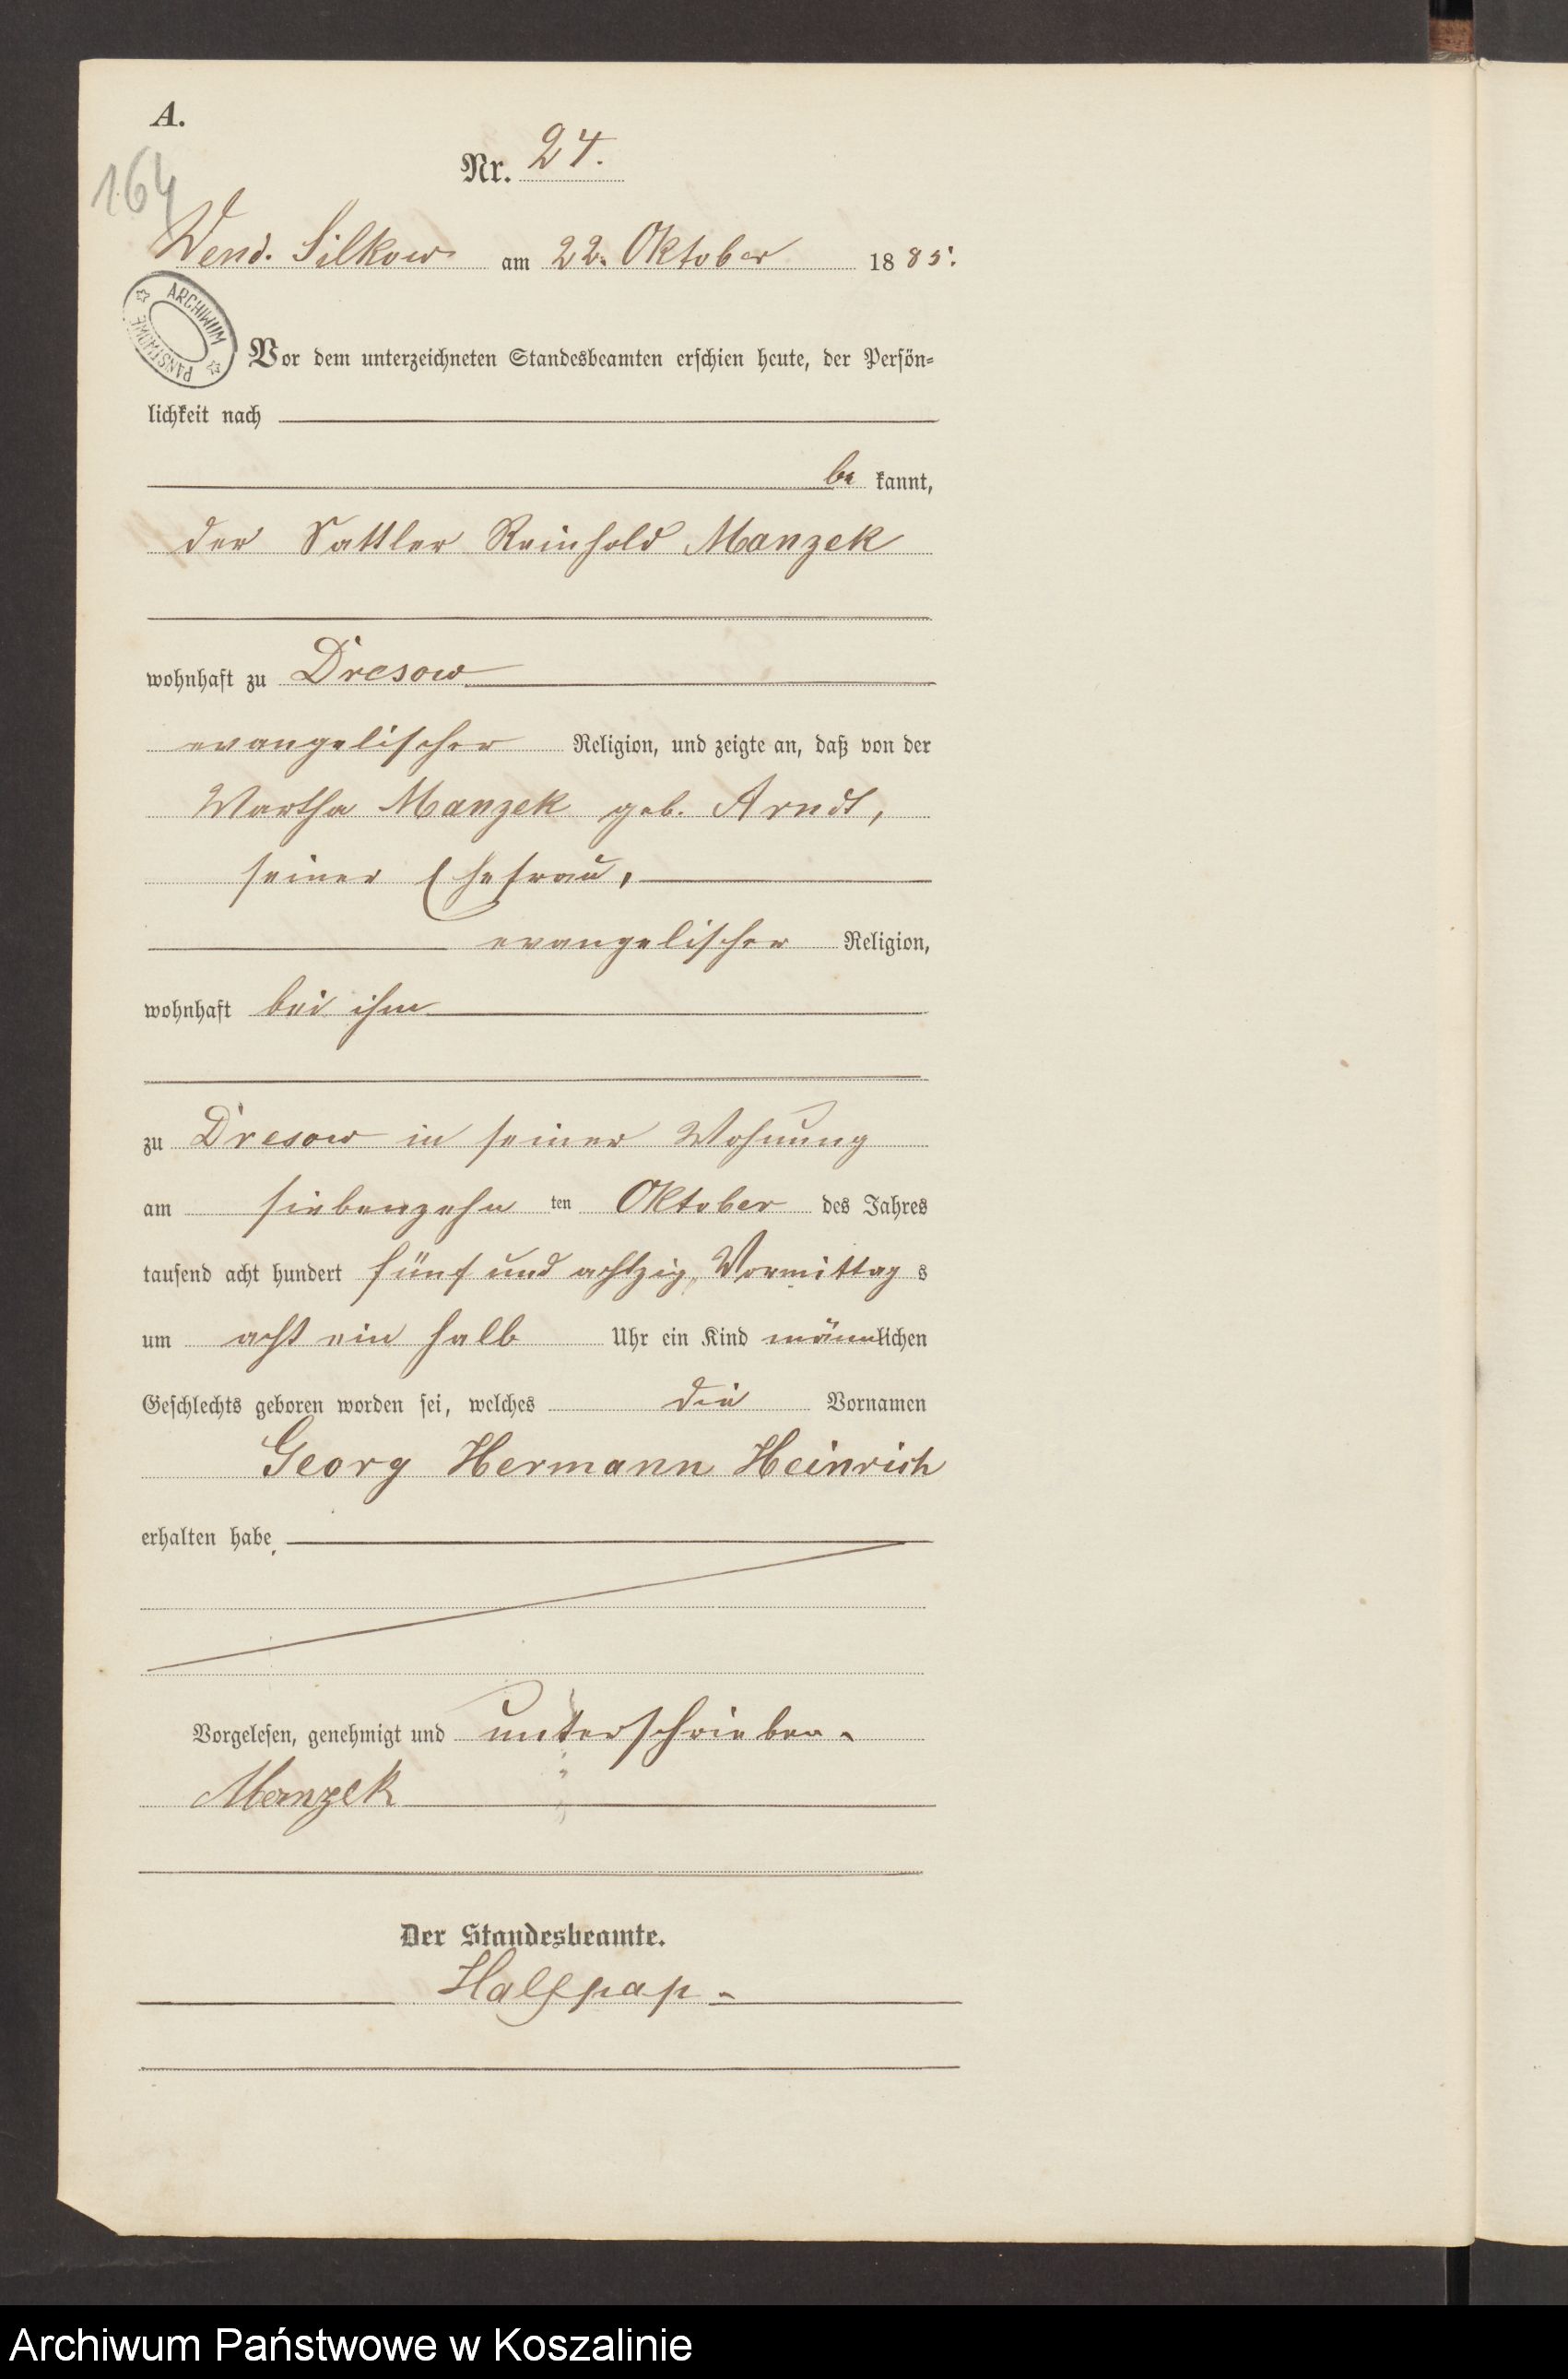 A.
Nr. 24.
164
Wend. Silkow am 22. Oktober 1885.
ARCHIWUM PAŃSTWOWE
Vor dem unterzeichneten Standesbeamten erschien heute, der Persön-
lichkeit nach
be kannt,
der Sattler Reinhold Manzek
wohnhaft zu Dresow
evangelischer Religion, und zeigte an, daß von der
Martha Manzek geb. Arndt,
seiner Ehefrau,
evangelischer Religion,
wohnhaft bei ihm
zu Dresow in seiner Wohnung
am siebenzehn ten Oktober des Jahres
tausend acht hundert fünf und achtzig, Vormittag s
um acht ein halb Uhr ein Kind männlichen
Geschlechts geboren worden sei, welches die Vornamen
Georg Hermann Heinrich
erhalten habe.
Vorgelesen, genehmigt und unterschrieben.
Manzek
Der Standesbeamte.
Halfpap.
Archiwum Państwowe w Koszalinie